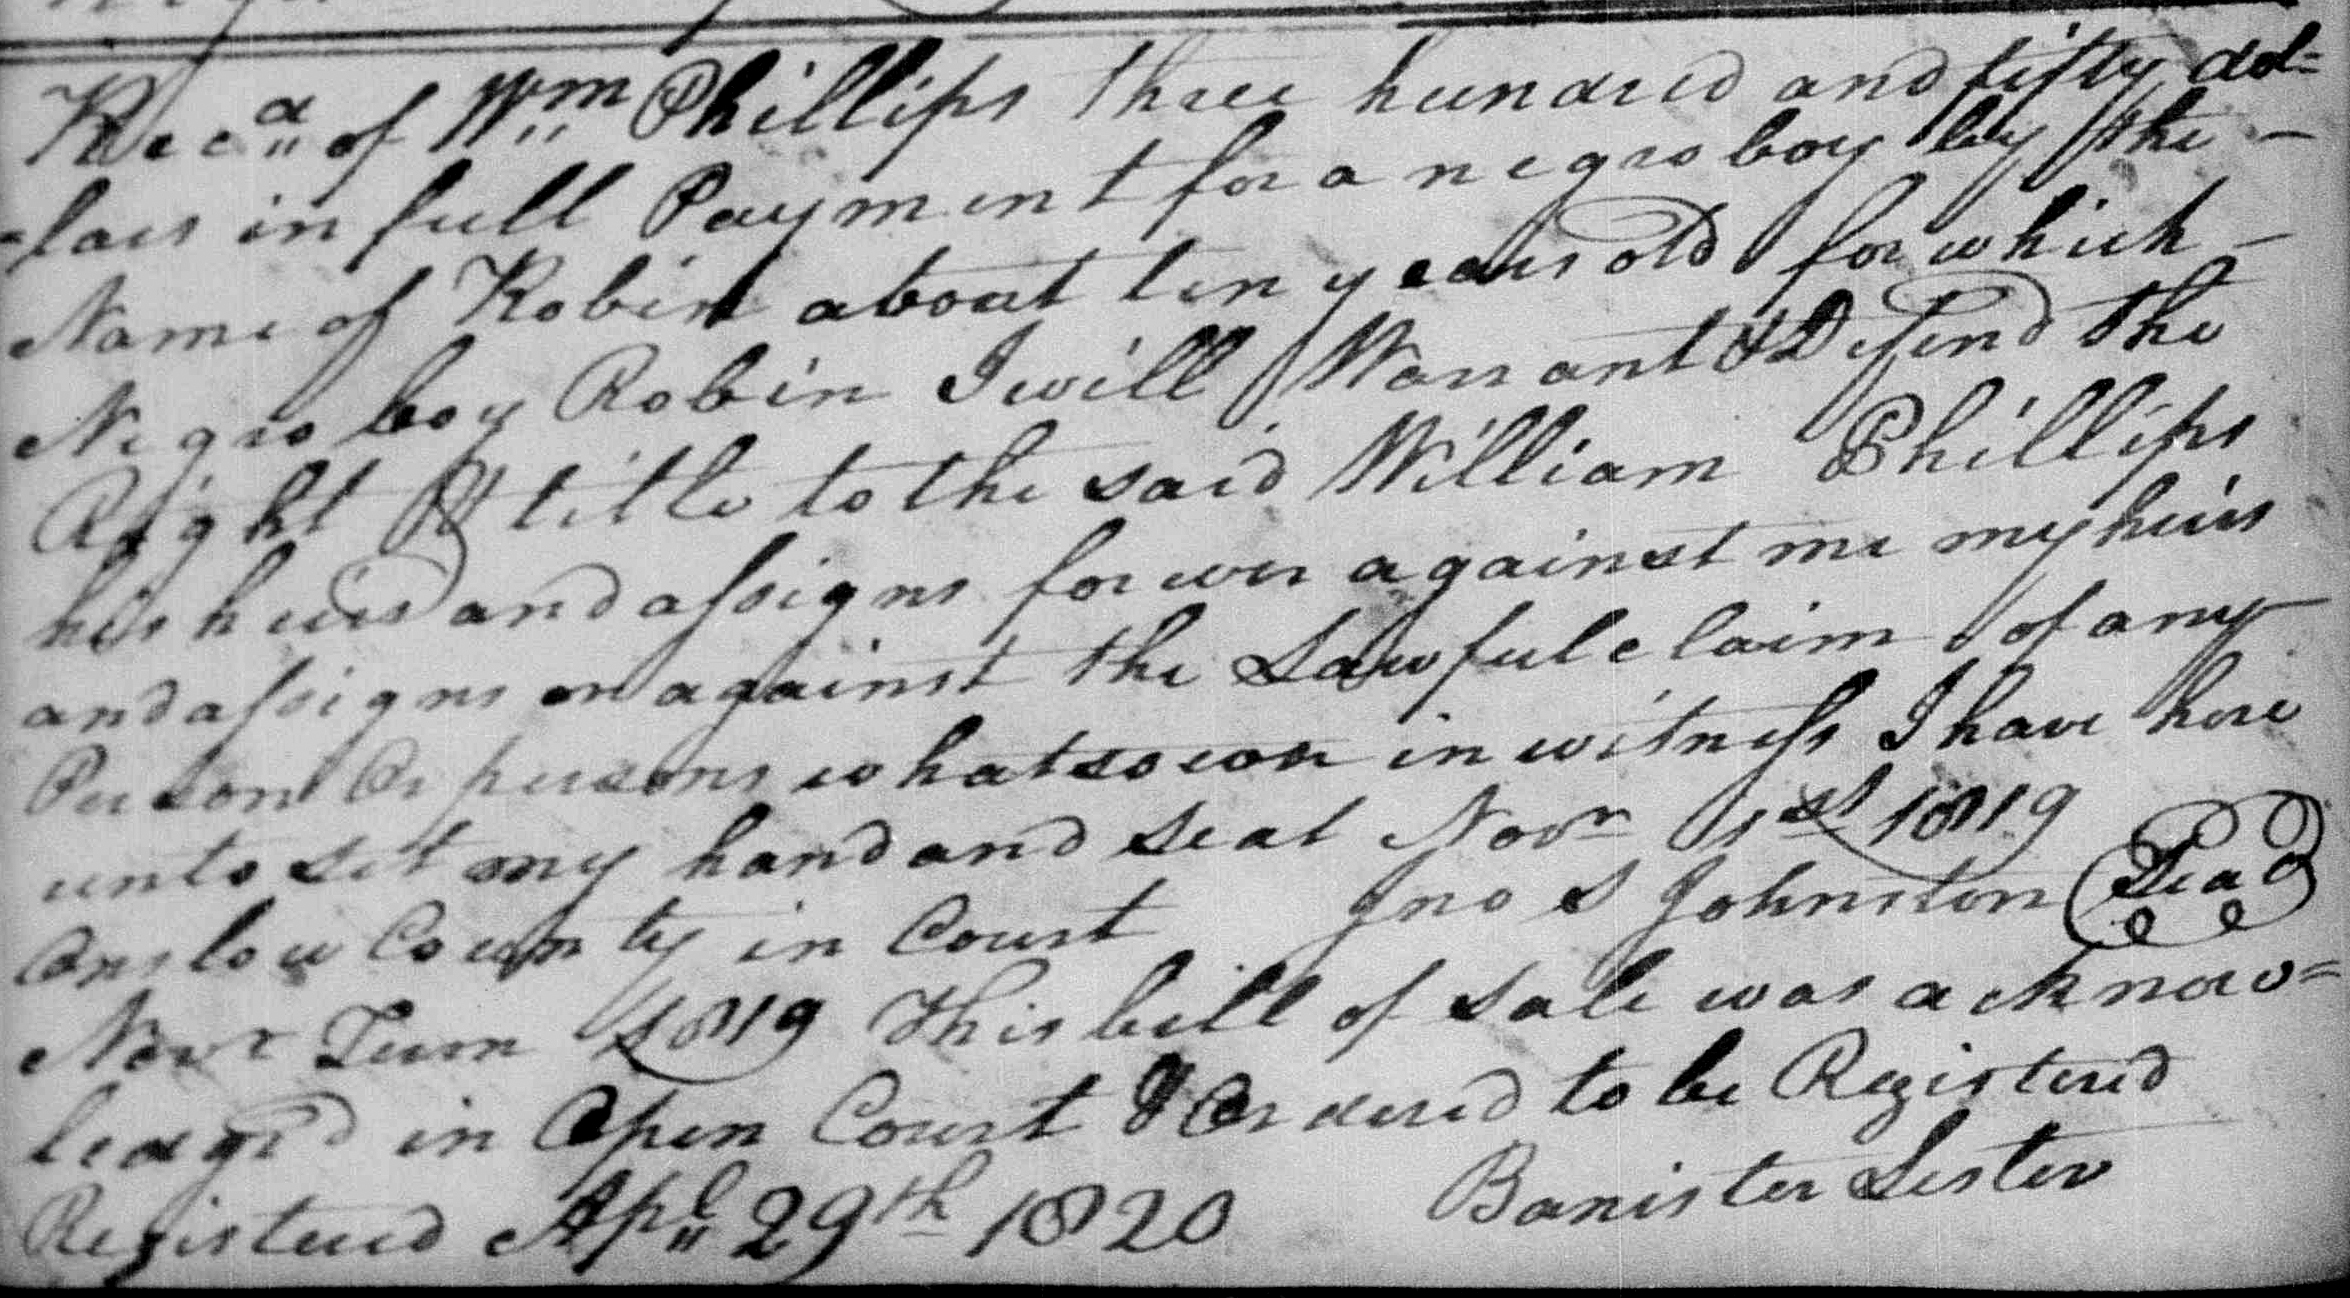 Recd of Wm Phillips three hundred and fifty dol=
=lars in full Payment for a negro boy by the -
Name of Robin about ten years old for which -
Negro boy Robin I will Warrant & Defend the
Right & title to the said William Phillips
his heirs and assigns forever against me my heirs
and assigns or against the Lawful claim of any
Person Or persons whatsoever in witness I have here
unto set my hand and seal Novr 1st 1819
Onslow County in Court Jno S Johnston Seal
Novr Term 1819 This bill of sale was acknow=
ledged in Open Court & Ordered to be Registered
Registered Apl 29th 1820 Banister Lester